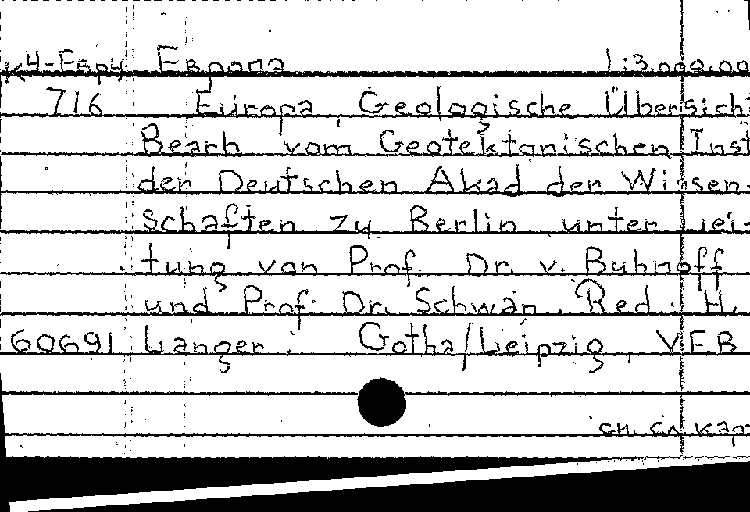 К4-Евру Европа 1:3.000.00
716 Europa, Geologische Übersich
Bearb vom Geotektonischen Inst
der Deutschen Akad der Wissen-
schaften zu Berlin unter Lei-
tung von Prof. Dr. v. Bubnoff
und Prof. Dr. Schwan. Red.: H.
60691 Langer. Gotha/Leipzig, VEB
см. сл карт